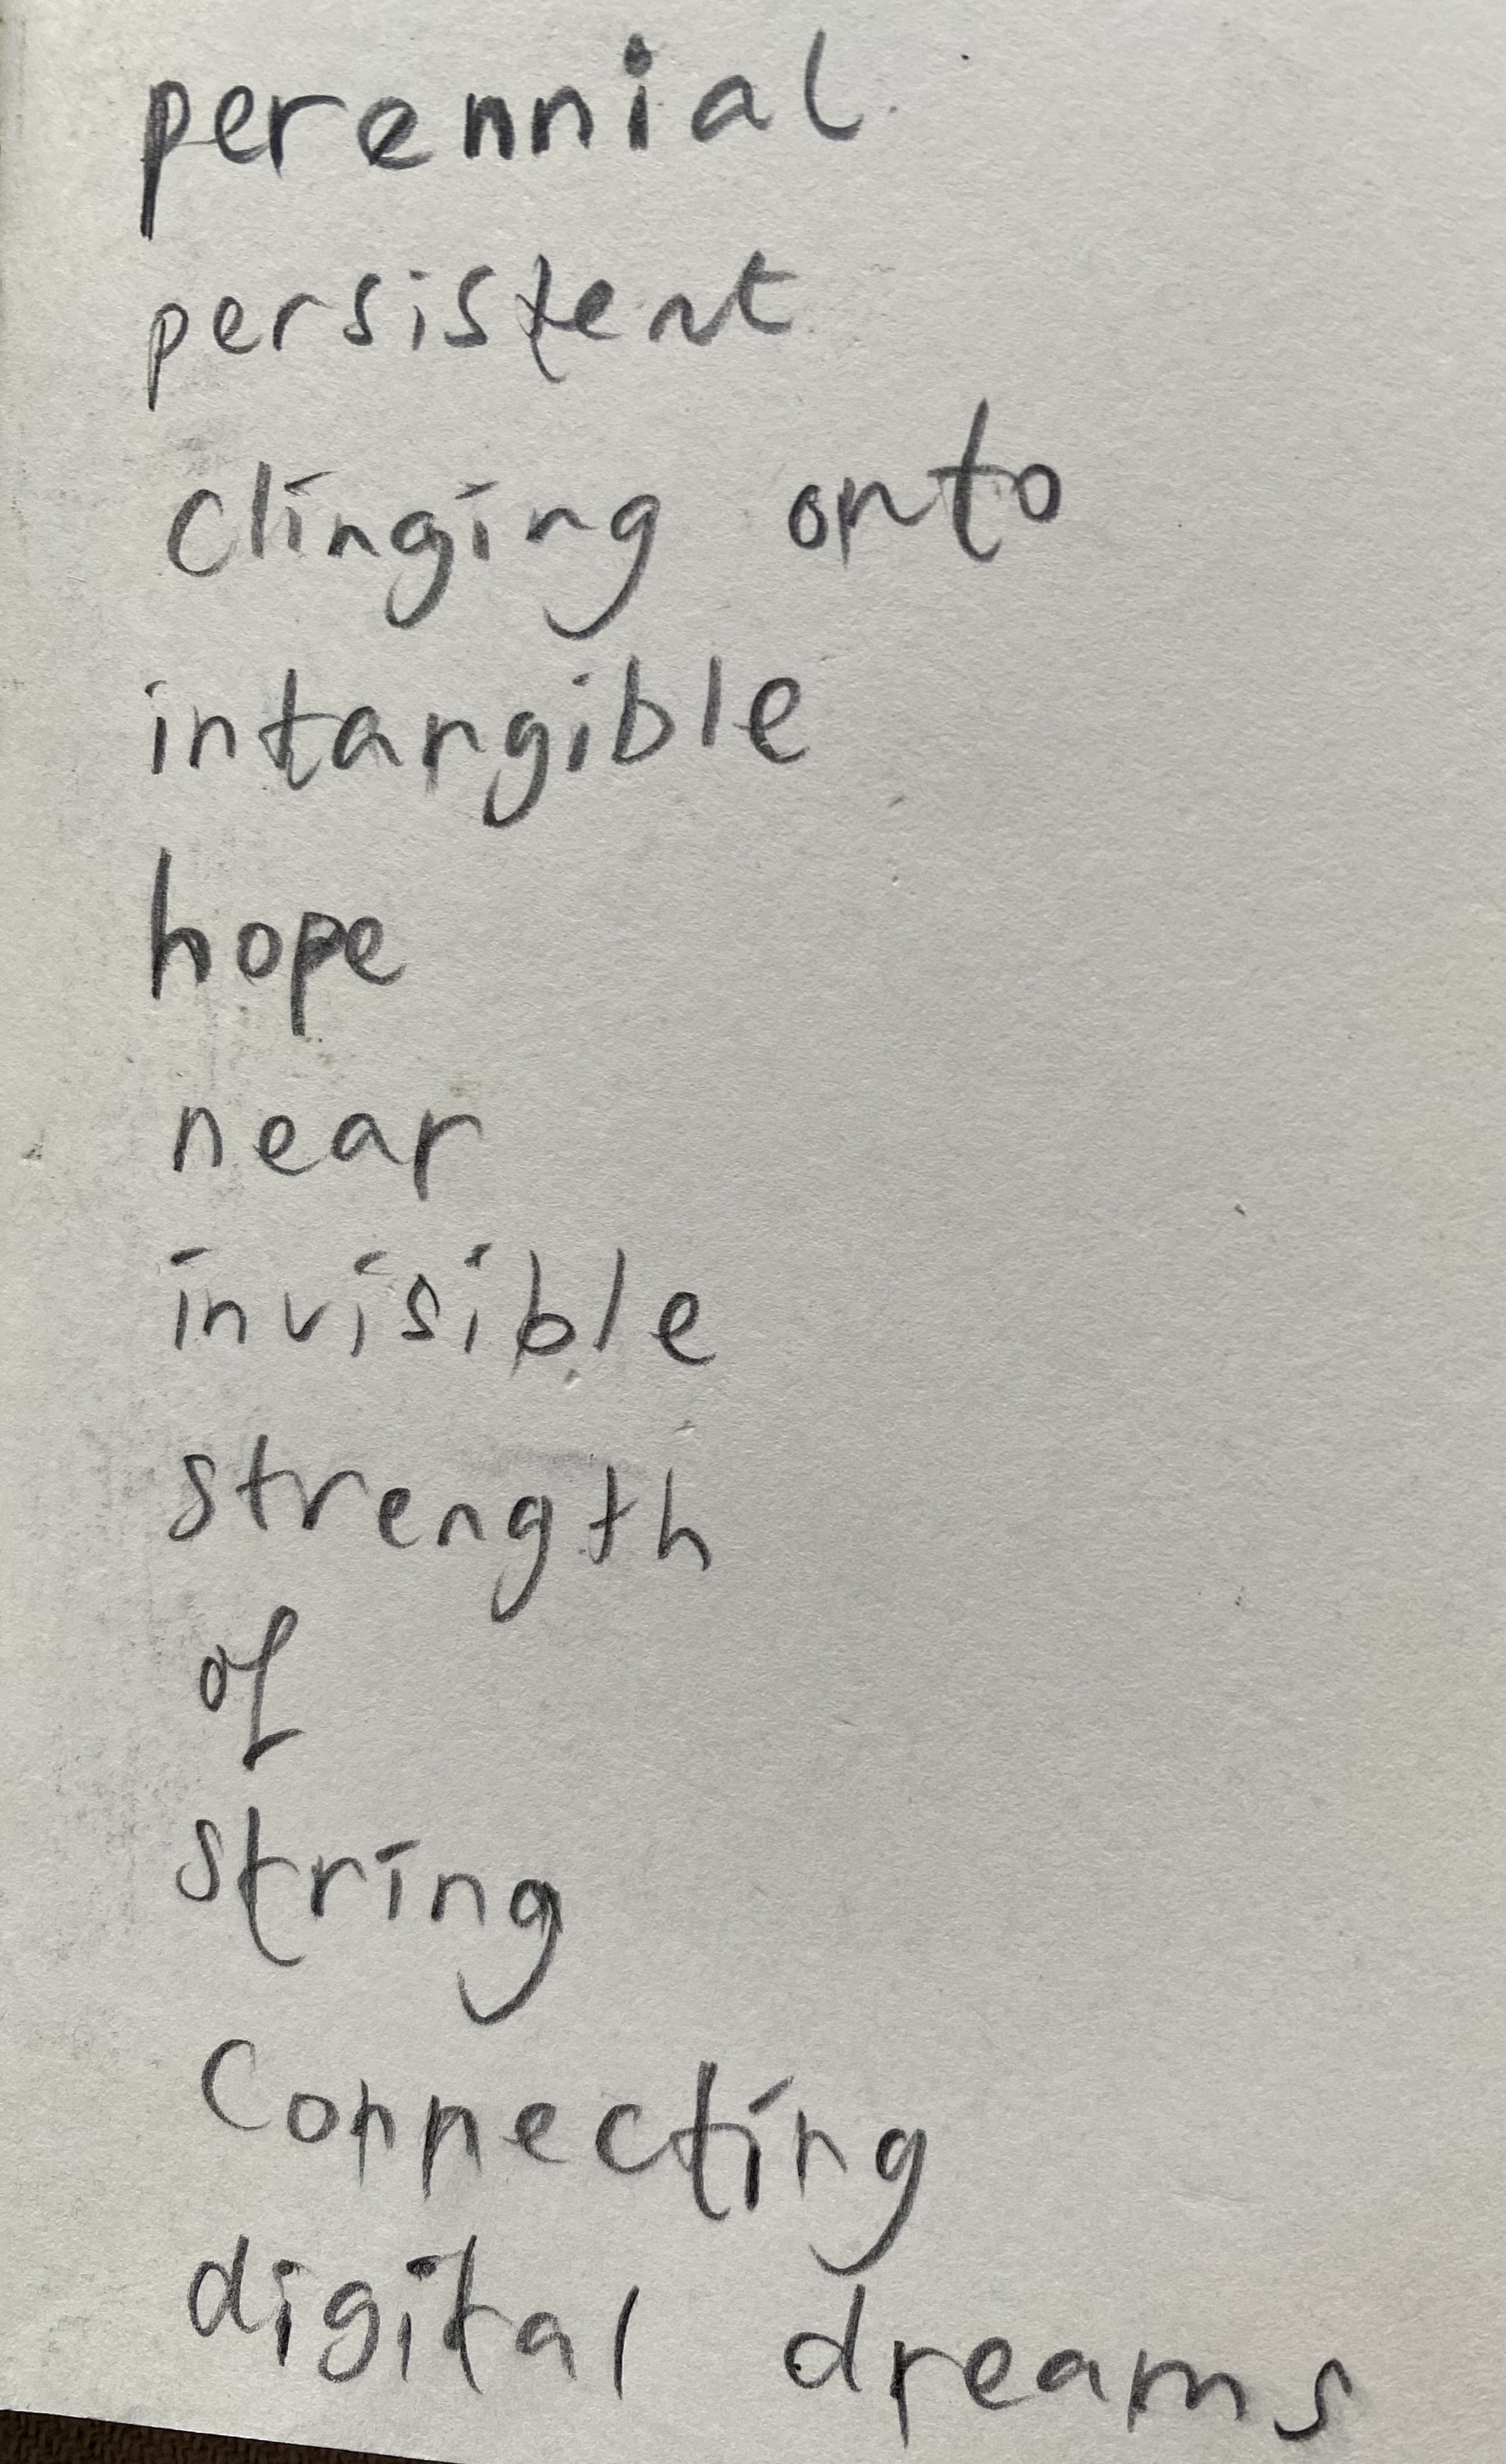 perennial
persistent
clinging onto
intangible
hope
near
invisible
strength
of
string
Connecting
digital dreams